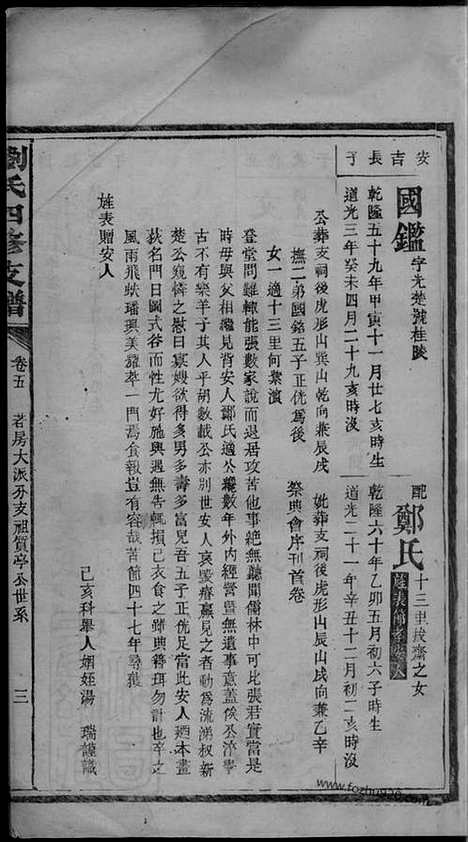 安吉長丁
國鑑 字光楚號桂陵
乾隆五十九年甲寅十一月廿七亥時生
道光三年癸未四月二十九亥時沒
配鄭氏 十三里拔齋之女
旌表節孝
乾隆六十年乙卯五月初六子時生
道光二十一年辛丑十二月初二亥時沒
公葬支祠後虎形山巽山乾向兼辰戌
妣葬支祠後虎形山辰山戌向兼乙辛
撫二弟國銘五子正侊為後
祭典會序刊首卷
女一適十三里何業演
登堂問難輒能張數家說而退居攻苦他事絕無聽聞儒林中可比張君實當是
時毋與父相繼見背安人鄭氏適公纔數年外內經營罣無遺事意蓋俟公濟寧
古不有樂羊子其人乎胡數載公亦別世安人哀毀瘠羸見之者動為流涕叔新
楚公窺憐之慰曰寡嫂欲得多男多壽多富兒吾五子正侊足當此安人本畫
荻名門日圖式谷而性尤好施與遇無告輒損己衣食之釋典簪珥勿計也卒之
風雨飛蚨璠璵美耀萃一門焉食報豈有容哉苦節四十七年尋獲
旌表贈安人
己亥科舉人姻姪湯 瑞謹識
劉氏四修支譜
卷五
若房大派分支祖質亭公世系
三
www.fozhu920.com